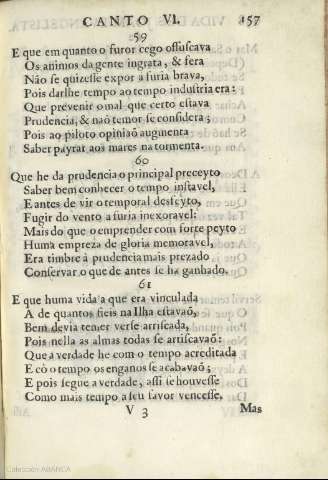 CANTO VI. 157
59
E que em quanto o furor cego offuscava
Os animos da gente ingrata, & fera
Não se quizesse expor a furia brava,
Pois darlhe tempo ao tempo industria era:
Que prevenir o mal que certo estava
Prudencia, & não temor se considera;
Pois ao piloto opiniaõ augmenta
Saber payrar aos mares na tormenta.
60
Que he da prudencia o principal preceyto
Saber bem conhecer o tempo instavel,
E antes de vir o temporal desfeyto,
Fugir do vento a furia inexoravel:
Mais do que o emprender com forte peyto
Huma empreza de gloria memoravel,
Era timbre à prudencia mais prezado
Conservar o que de antes se ha ganhado.
61
E que huma vida a que era vinculada
A de quantos fieis na Ilha estavaõ,
Bem devia temer verse arriscada,
Pois nella as almas todas se arriscavaõ:
Que a verdade he com o tempo acreditada
E cò o tempo os enganos se acabavaõ;
E pois segue a verdade, assi se houvesse
Como mais tempo a seu favor vencesse.
V 3 Mas
Colección ABANCA